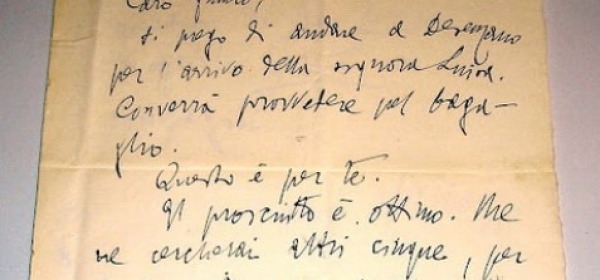 Caro
ti prego di andare a Desenzano
per l'arrivo della signora Luisa.
Converrà provvedere pel baga-
glio.
Questo è per te.
Il prosciutto è ottimo. Me
ne cercherai altri cinque, per